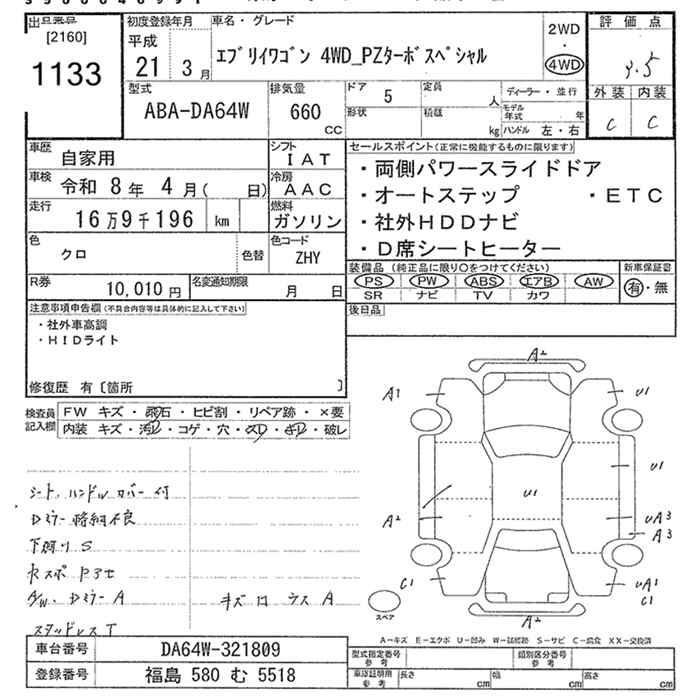 [2160]
1133
初度登録年月
平成
21 3月
車名・グレード
エブリイワゴン 4WD_PZターボスペシャル
2WD
・
4WD
評価点
外装 内装
C C
型式
ABA-DA64W
排気量
660
CC
ドア
5
定員
人
形状
積載
kg
ディーラー・並行
モデル年式 年
ハンドル 左・右
車歴
自家用
シフト
IAT
車検
令和 8年 4月( 日)
冷房
AAC
走行
16万9千196 km
燃料
ガソリン
色
クロ
色替
色コード
ZHY
R券
10,010 円
名変通知期限
月 日
セールスポイント(正常に機能するものに限ります)
・両側パワースライドドア
・オートステップ ・ETC
・社外HDDナビ
・D席シートヒーター
装備品 (純正品に限り○をつけてください)
PS PW ABS エアB AW
SR ナビ TV カワ
新車保証書
有・無
後日品
注意事項申告欄(不具合内容等は具体的に記入して下さい)
・社外車高調
・HIDライト
修復歴 有〔箇所 〕
検査員記入欄
FW キズ・飛石・ヒビ割・リペア跡・×要
内装 キズ・汚レ・コゲ・穴・スレ・キレ・破レ
シート、ハンドルカバー付
Dミラー格納不良
下廻り S
A/W、Dミラー A
スタッドレスT
A2
A1
U1
U1
U1
A2
UA3
A3
C1
UA1
C1
A2
スペア
A-キズ E-エクボ U-凹み W-補修跡 S-サビ C-腐食 XX-交換済
車台番号
DA64W-321809
登録番号
福島 580 む 5518
型式指定番号
参考
類別区分番号
参考
車庫証明用
参考
長さ cm 幅 cm 高さ cm